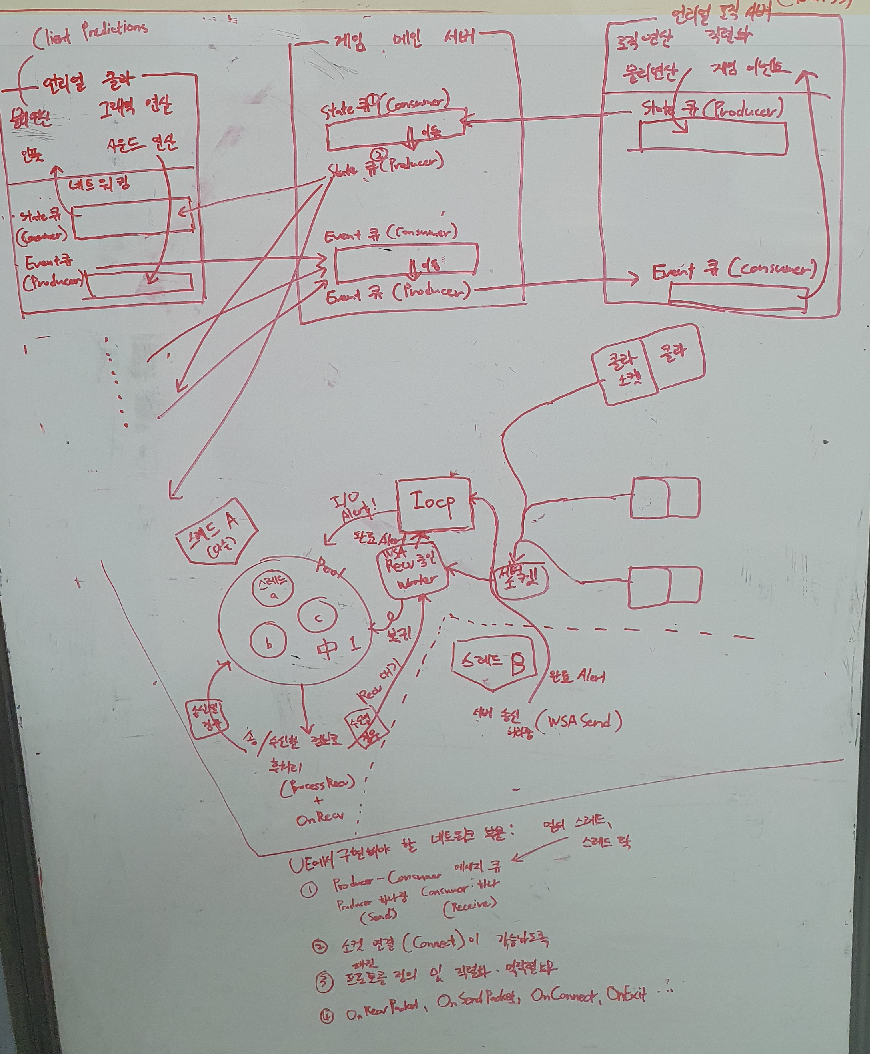 Client Predictions
언리얼 클라
물리연산 그래픽 연산
인풋 사운드 연산
네트워킹
State 큐
(Consumer)
Event 큐
(Producer)
게임 메인 서버
State 큐① (Consumer)
이동
State 큐② (Producer)
Event 큐 (Consumer)
이동
Event 큐 (Producer)
언리얼 로직 서버
로직 연산 직렬화
물리연산 게임 이벤트
State 큐 (Producer)
Event 큐 (Consumer)
클라
소켓
클라
Iocp
I/O
Alert!
완료 Alert
WSA
Recv 중인
Worker
서버
소켓!!
스레드 A
Pool
스레드
a
b
c
中 1
복귀
Recv 대기
송/수신한 정보로
후처리
(ProcessRecv)
+
OnRecv
스레드 B
완료 Alert
서버 송신
(WSA Send)
UE에서 구현해야 할 네트워크 부분: 멀티 스레드,
스레드 락
① Producer-Consumer 메세지 큐
Producer 하나랑 Consumer 하나
(Send) (Receive)
② 소켓 연결 (Connect)이 가능하도록
패킷
③ 프로토콜 정의 및 직렬화·역직렬화
④ OnRecvPacket, OnSendPacket, OnConnect, OnExit ...